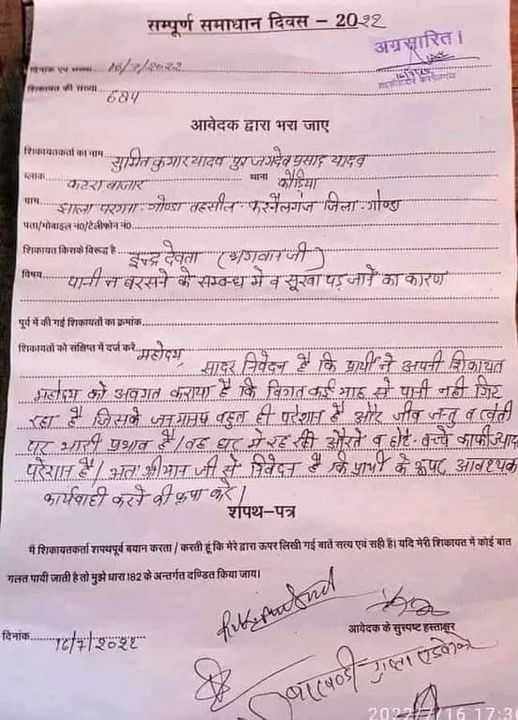 सम्पूर्ण समाधान दिवस – 2022
अग्रसारित।
दिनांक एवं समय 16/7/2022
शिकायत की संख्या 684
आवेदक द्वारा भरा जाए
शिकायतकर्ता का नाम सुमित कुमार यादव पुत्र जगदेव प्रसाद यादव
ब्लाक कटरा बाजार थाना कौडिया
ग्राम झाला परगना गोण्डा तहसील करनैलगंज जिला गोण्डा
पता/मोबाइल नं0/टेलीफोन नं0
शिकायत किसके विरूद्ध है इन्द्र देवता (भगवान जी)
विषय पानी न बरसने के सम्बन्ध में व सूखा पड़ जाने का कारण
पूर्व में की गई शिकायतों का क्रमांक
शिकायतों को संक्षिप्त में दर्ज करें महोदय
सादर निवेदन है कि प्रार्थी ने अपनी शिकायत
महोदय को अवगत कराया है कि विगत कई माह से पानी नही गिर
रहा है जिससे जनमानस बहुत ही परेशान है और जीव जन्तु व खेती
पर भारी प्रभाव है। वह घर में रह रही औरते व छोटे बच्चे काफी ज्यादा
परेशान है। अतः श्रीमान जी से निवेदन है कि प्रार्थी के ऊपर आवश्यक
कार्यवाही करने की कृपा करे।
शपथ–पत्र
मैं शिकायतकर्ता शपथपूर्व बयान करता / करती हूं कि मेरे द्वारा ऊपर लिखी गई बातें सत्य एवं सही है। यदि मेरी शिकायत में कोई बात
गलत पायी जाती है तो मुझे धारा 182 के अन्तर्गत दण्डित किया जाय।
आवेदक के सुस्पष्ट हस्ताक्षर
दिनांक 16/7/2022